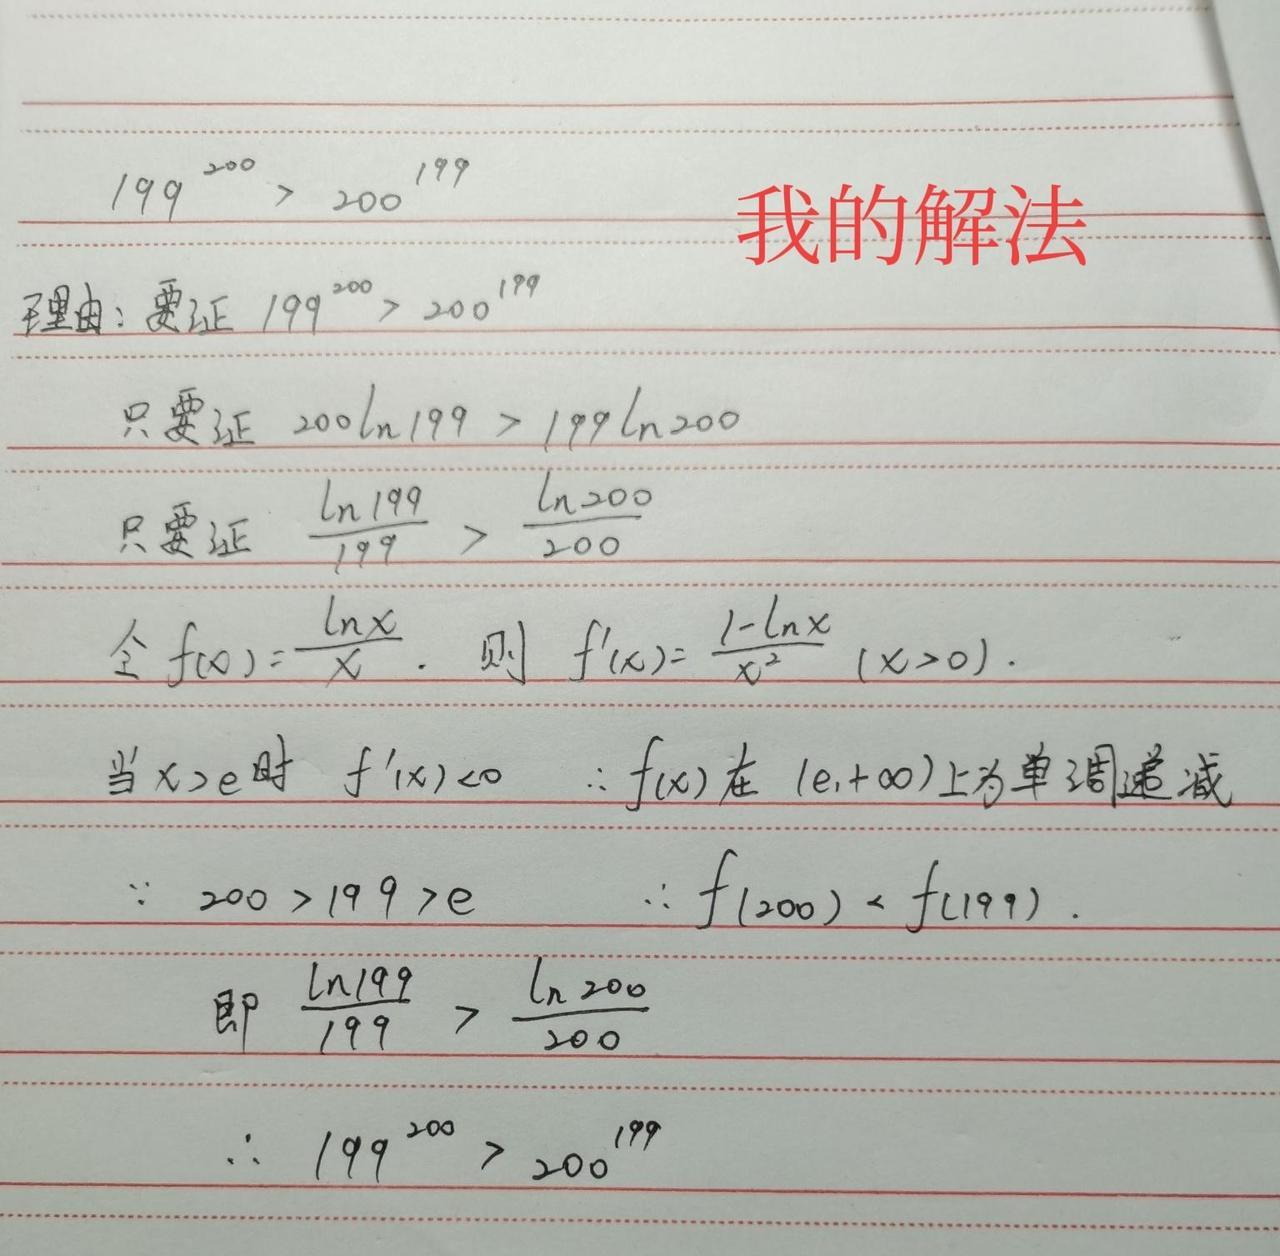 199^200 > 200^199
我的解法
理由：要证 199^200 > 200^199
只要证 200ln199 > 199ln200
只要证 ln199/199 > ln200/200
令 f(x)=lnx/x . 则 f'(x)=(1-lnx)/x² (x>0).
当x>e时 f'(x)<0 ∴f(x)在(e,+∞)上为单调递减
∵ 200>199>e ∴f(200)<f(199).
即 ln199/199 > ln200/200
∴ 199^200 > 200^199